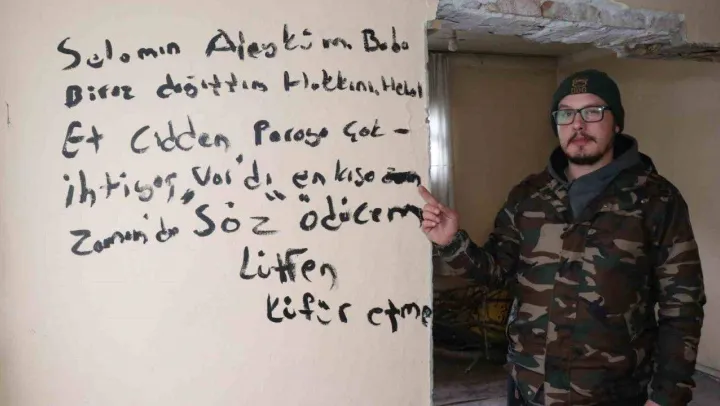 Selamın Aleyküm Baba
Biraz dağıttım Hakkını Helal
Et Cidden Paraya Çok -
ihtiyaç var'dı en kısa
zaman'da Söz ödücem
Lütfen
Küfür etme